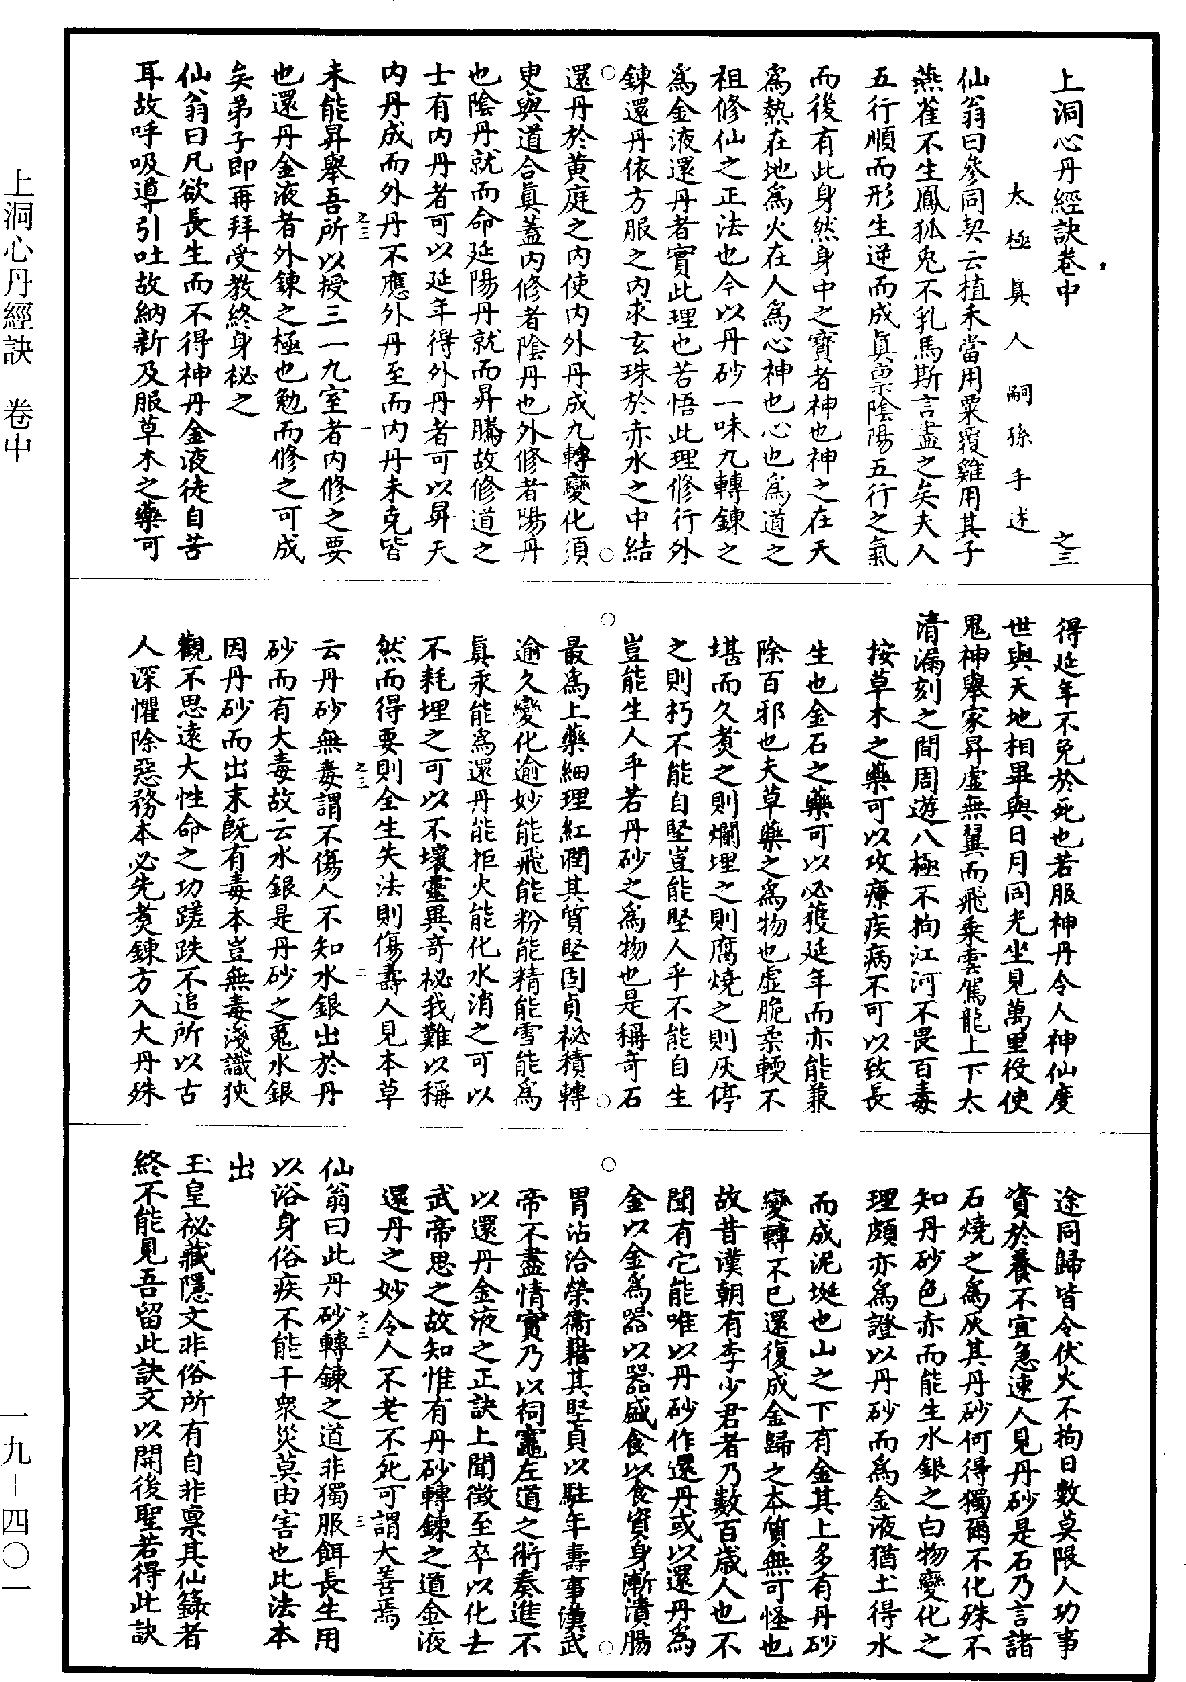 上洞心丹經訣卷中　之三
太極真人嗣孫手述
仙翁曰參同契云植禾當用粟覆雞用其子
燕雀不生鳳狐兔不乳馬斯言盡之矣夫人
五行順而形生逆而成真稟陰陽五行之氣
而後有此身然身中之寶者神也神之在天
爲熱在地爲火在人爲心神也心也爲道之
祖修仙之正法也今以丹砂一味九轉鍊之
爲金液還丹者實此理也苦悟此理修行外
鍊還丹依方服之內求玄珠於赤水之中結
還丹於黃庭之內使內外丹成九轉變化須
臾與道合真蓋內修者陰丹也外修者陽丹
也陰丹就而命延陽丹就而昇騰故修道之
士有內丹者可以延年得外丹者可以昇天
內丹成而外丹不應外丹至而內丹未克皆
之三　一
未能昇舉吾所以授三一九室者內修之要
也還丹金液者外鍊之極也勉而修之可成
矣弟子即再拜受教終身祕之
仙翁曰凡欲長生而不得神丹金液徒自苦
耳故呼吸導引吐故納新及服草木之藥可
得延年不免於死也若服神丹令人神仙度
世與天地相畢與日月同光坐見萬里役使
鬼神舉家昇虛無翼而飛乘雲駕龍上下太
清漏刻之間周遊八極不拘江河不畏百毒
按草木之藥可以攻療疾病不可以致長
生也金石之藥可以必獲延年而亦能兼
除百邪也夫草藥之爲物也虛脆柔輭不
堪而久煑之則爛埋之則腐燒之則灰停
之則朽不能自堅豈能堅人乎不能自生
豈能生人乎若丹砂之爲物也是稱奇石
最爲上藥細理紅潤其質堅固貞祕積轉
逾久變化逾妙能飛能粉能精能雪能爲
真汞能爲還丹能拒火能化水消之可以
不耗埋之可以不壞靈異奇祕我難以稱
然而得要則全生失法則傷壽人見本草
之三　二
云丹砂無毒謂不傷人不知水銀出於丹
砂而有大毒故云水銀是丹砂之䰟水銀
因丹砂而出末旣有毒本豈無毒淺識狹
觀不思遠大性命之功蹉跌不追所以古
人深懼除惡務本必先煑鍊方入大丹殊
途同歸皆令伏火不拘日數莫限人功事
資於養不宜急速人見丹砂是石乃言諸
石燒之爲灰其丹砂何得獨爾不化殊不
知丹砂色赤而能生水銀之白物變化之
理頗亦爲證以丹砂而爲金液猶土得水
而成泥埏也山之下有金其上多有丹砂
變轉不已還復成金歸之本質無可怪也
故昔漢朝有李少君者乃數百歲人也不
聞有它能唯以丹砂作還丹或以還丹爲
金以金爲器以器盛食以食資身漸漬腸
胃沾洽榮衞藉其堅貞以駐年壽事漢武
帝不盡情實乃以祠竈左道之術奏進不
以還丹金液之正訣上聞徵至卒以化去
武帝思之故知惟有丹砂轉鍊之道金液
還丹之妙令人不老不死可謂大善焉
之三　三
仙翁曰此丹砂轉鍊之道非獨服餌長生用
以浴身俗疾不能干衆災莫由害也此法本
出
玉皇祕藏隱文非俗所有自非稟其仙籙者
終不能見吾留此訣文以開後聖若得此訣
上洞心丹經訣　卷中
一九－四〇一